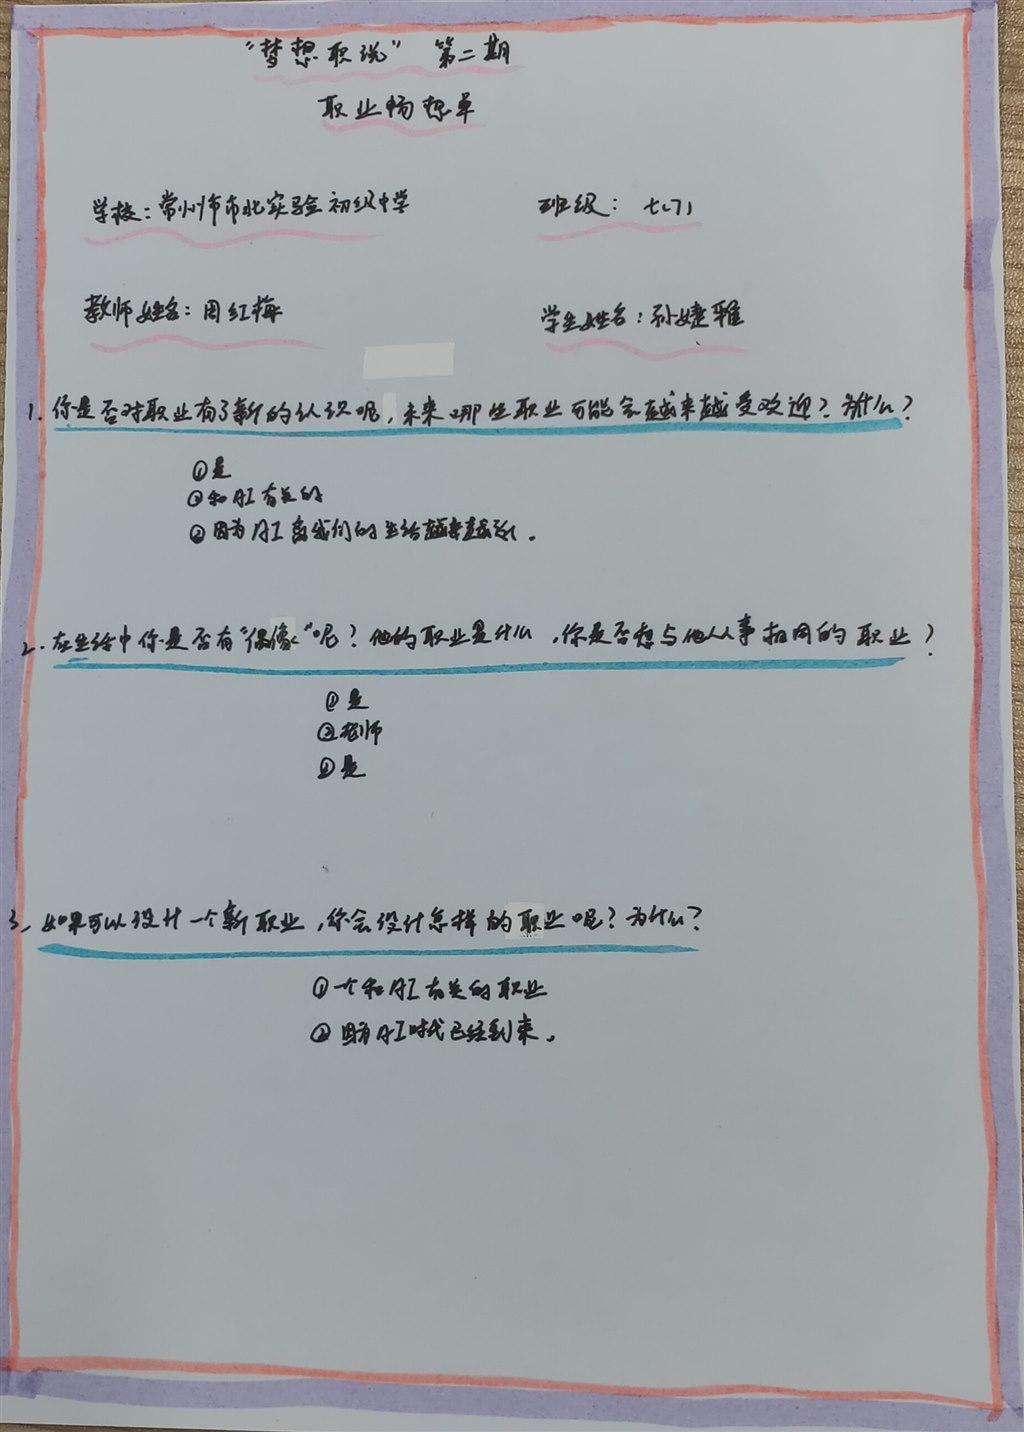 “梦想职说” 第二期
职业畅想单
学校：常州市市北实验初级中学 班级：七(7)
教师姓名：周红梅 学生姓名：孙婕雅
1. 你是否对职业有了新的认识呢，未来哪些职业可能会越来越受欢迎？为什么？
①是
②和AI有关的
②因为AI离我们的生活越来越近。
2. 在生活中你是否有“偶像”呢？他的职业是什么，你是否想与他从事相同的职业？
①是
②老师
③是
3. 如果可以设计一个新职业，你会设计怎样的职业呢？为什么？
①一个和AI有关的职业
②因为AI时代已经到来。